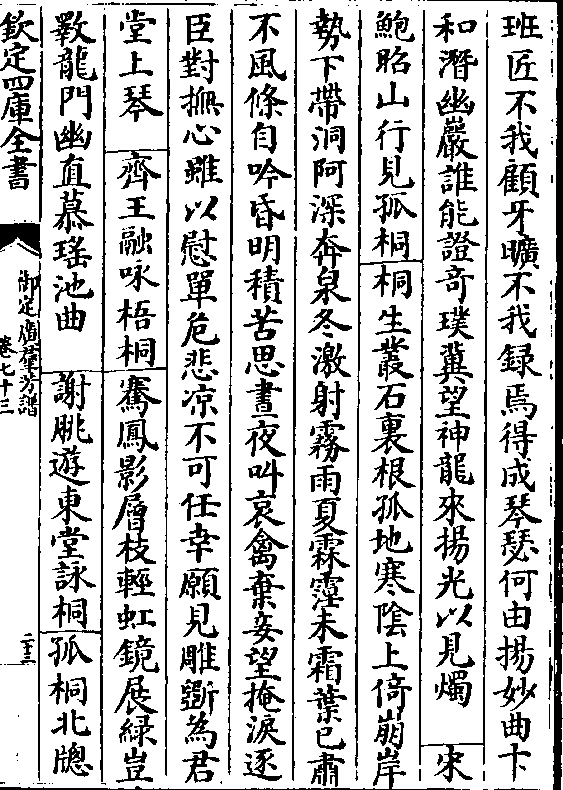 班匠不我顧牙曠不我録焉得成琴瑟何由揚妙曲卞
和潛幽巖誰能證奇璞冀望神龍來揚光以見燭 宋
鮑照山行見孤桐 桐生叢石裏根孤地寒陰上倚崩岸
勢下帶洞阿深奔泉冬激射霧雨夏霖霪未霜葉已肅
不風條自吟昏明積苦思晝夜叫哀禽棄妾望掩淚逐
臣對撫心雖以慰單危悲凉不可任幸願見雕斲為君
堂上琴 齊王融咏梧桐 騫鳳影層枝輕虹鏡展緑豈
斁龍門幽直慕瑤池曲 謝朓遊東堂詠桐 孤桐北牕
欽定四庫全書
御定廣羣芳譜
卷七十三
二十三